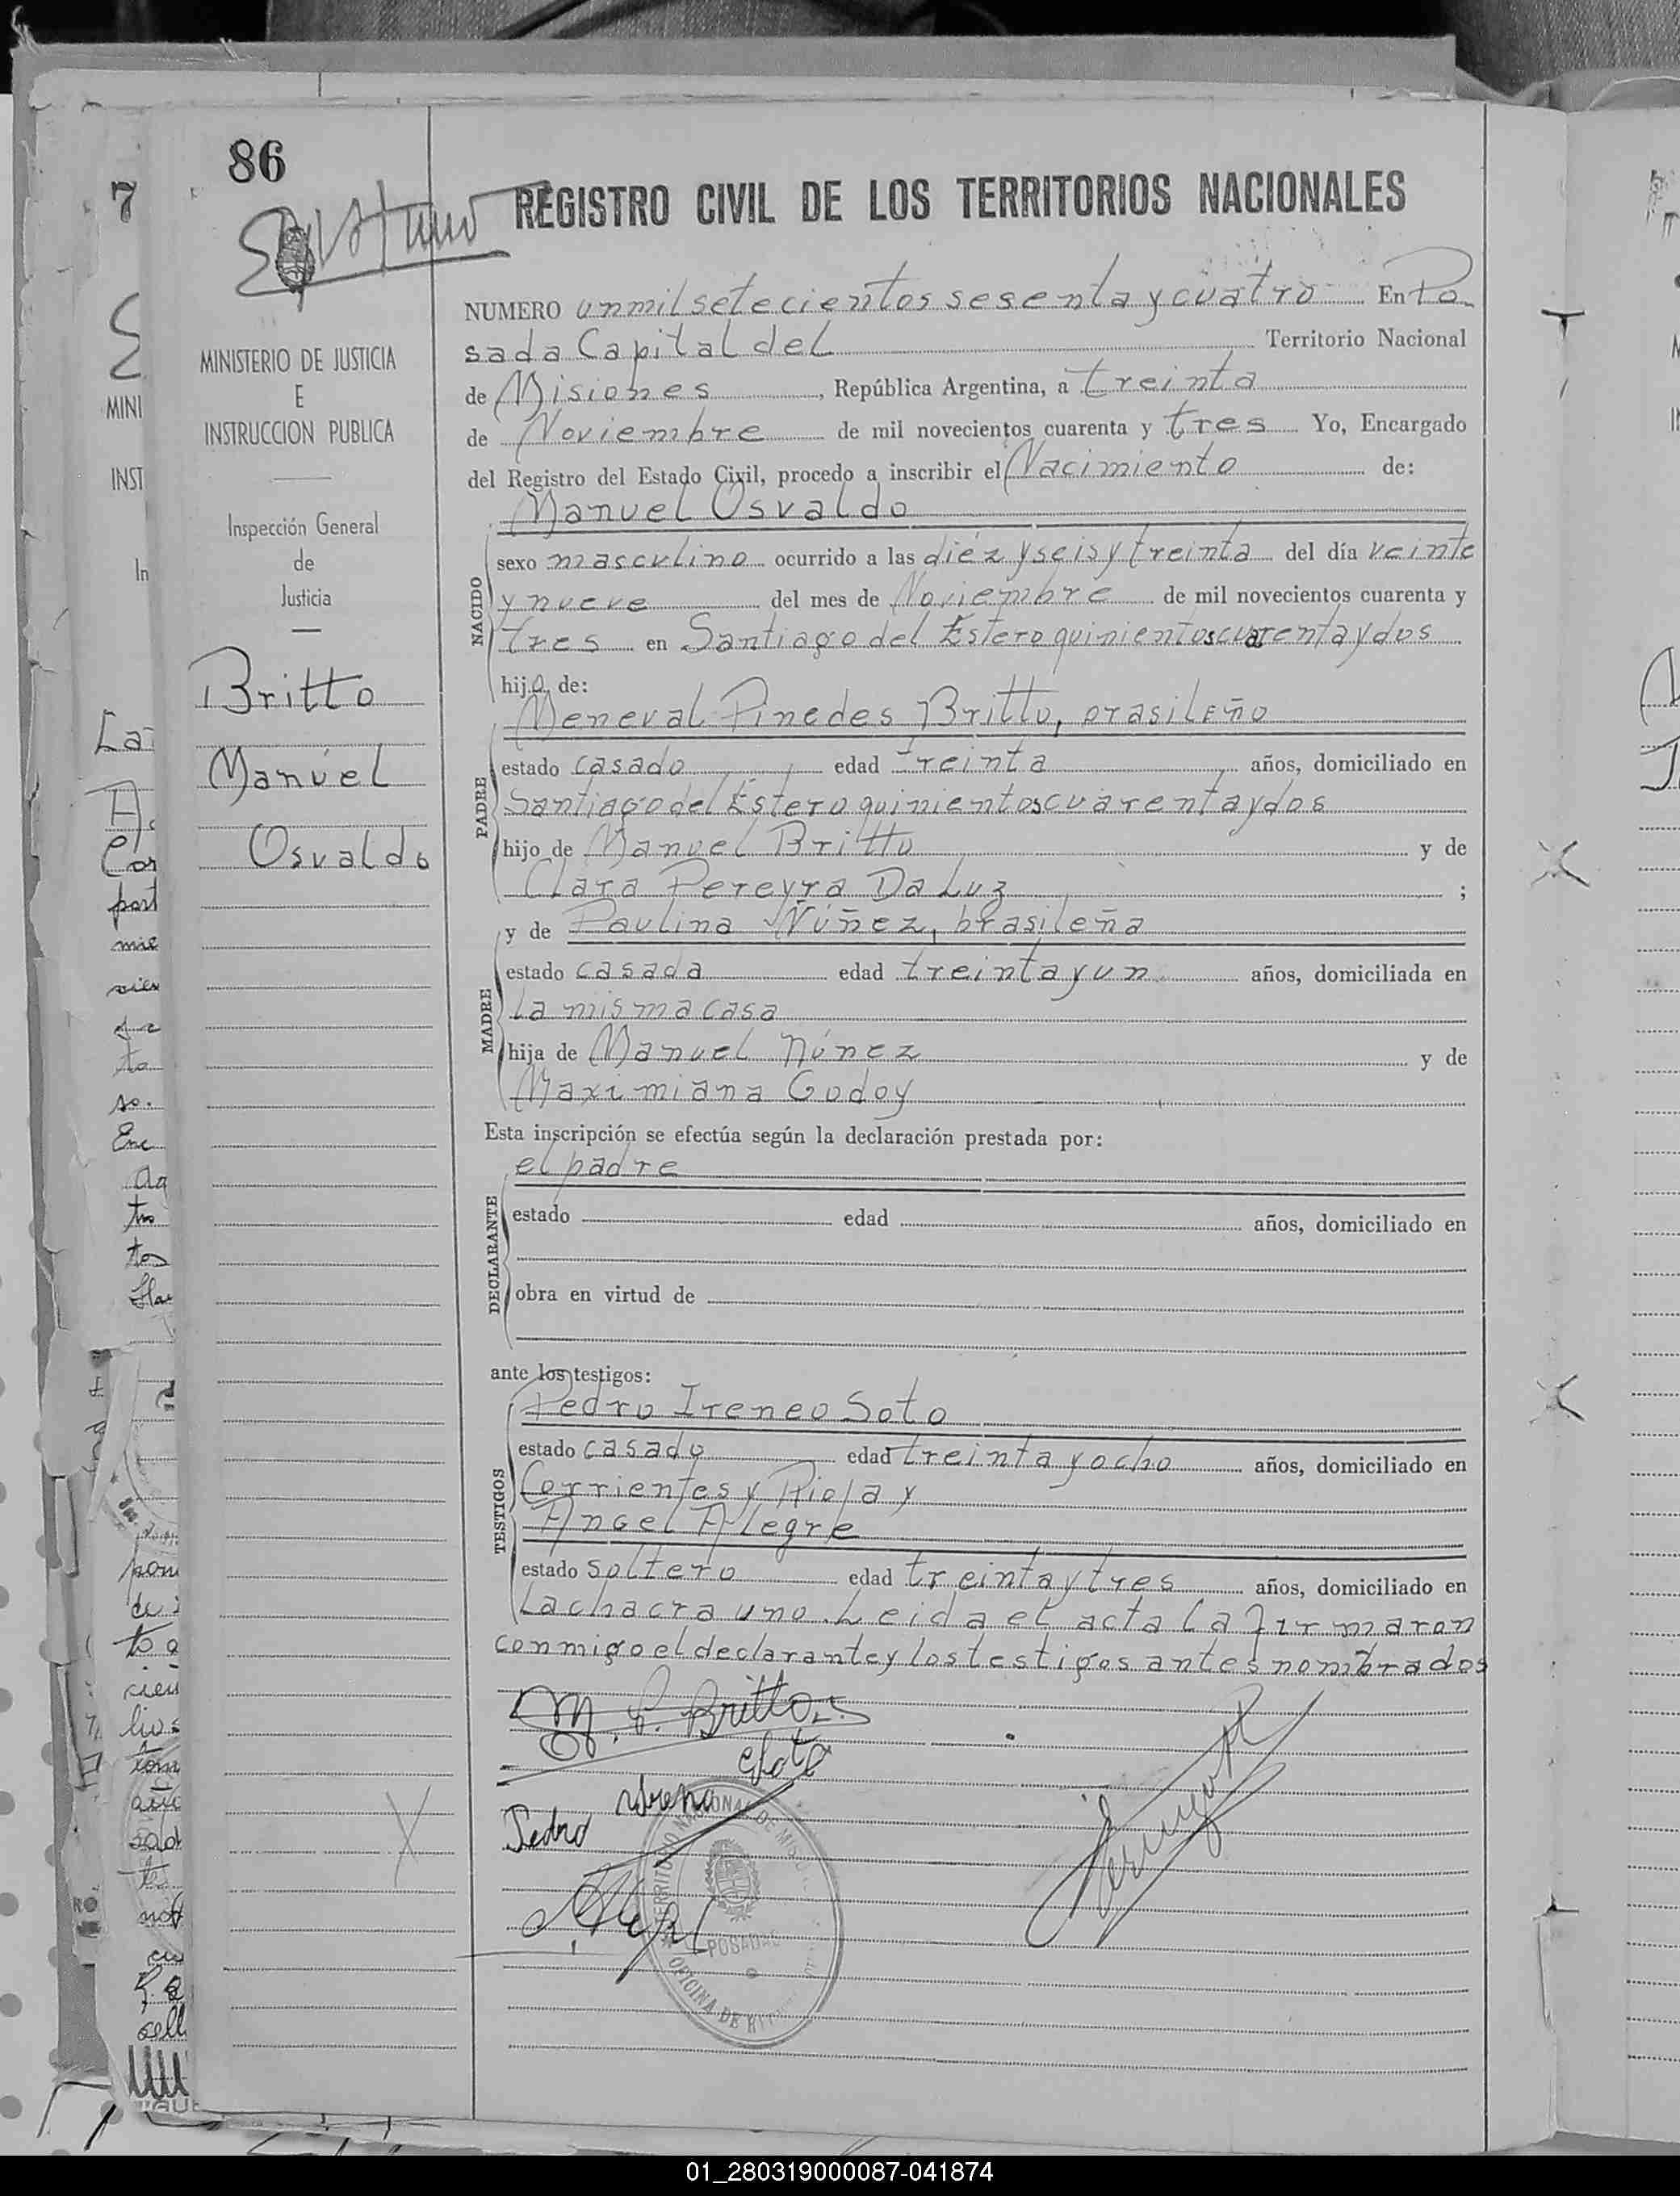 86
REGISTRO CIVIL DE LOS TERRITORIOS NACIONALES
NUMERO un mil setecientos sesenta y cuatro En Po
sada Capital del Territorio Nacional
de Misiones, República Argentina, a treinta
de Noviembre de mil novecientos cuarenta y tres Yo, Encargado
del Registro del Estado Civil, procedo a inscribir el Nacimiento de:
Manuel Osvaldo
NACIDO
sexo masculino ocurrido a las diez y seis y treinta del día veinte
y nueve del mes de Noviembre de mil novecientos cuarenta y
tres en Santiago del Estero quinientos cuarenta y dos
hijo de:
PADRE
Meneval Pinedes Britto, brasileño
estado casado edad treinta años, domiciliado en
Santiago del Estero quinientos cuarenta y dos
hijo de Manuel Britto y de
Clara Pereyra Da Luz ;
MADRE
y de Paulina Núñez, brasileña
estado casada edad treinta y un años, domiciliada en
la misma casa
hija de Manuel Núnez y de
Maximiana Godoy
Esta inscripción se efectúa según la declaración prestada por:
DECLARANTE
el padre
estado edad años, domiciliado en
obra en virtud de
ante los testigos:
TESTIGOS
Pedro Ireneo Soto
estado casado edad treinta y ocho años, domiciliado en
Corrientes y Rioja y
Angel Alegre
estado soltero edad treinta y tres años, domiciliado en
la chacra uno. Leida el acta la firmaron
conmigo el declarante y los testigos antes nombrados
M. P. Britto
Soto
Pedro Ireneo
TERRITORIO NACIONAL DE
POSADAS
OFICINA DE
MINISTERIO DE JUSTICIA
E
INSTRUCCION PUBLICA
Inspección General
de
Justicia
Britto
Manuel
Osvaldo
7
MINI
INST
In
01_280319000087-041874